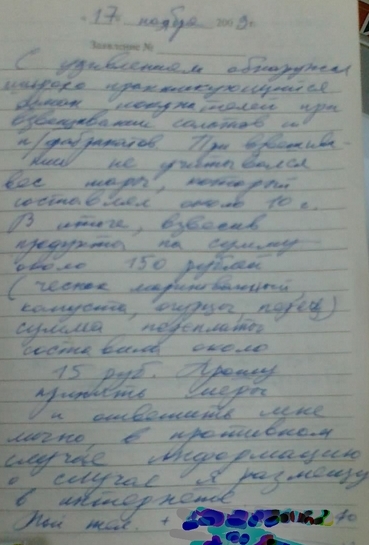 « 17 » ноября 2003 г.
Заявление №
С удивлением обнаружил
широко практикующийся
обман покупателей при
взвешивании салатов и
п/фабрикатов. При взвешива-
нии не учитывался
вес тары, который
составлял около 10 г.
В итоге, взвесив
продукты на сумму
около 150 рублей
(чеснок маринованный,
капуста, огурцы, перец)
сумма переплаты
составила около
15 руб. Прошу
принять меры
и ответить мне
лично, в противном
случае информацию
о случае я размещу
в интернете
Мой тел. +
70